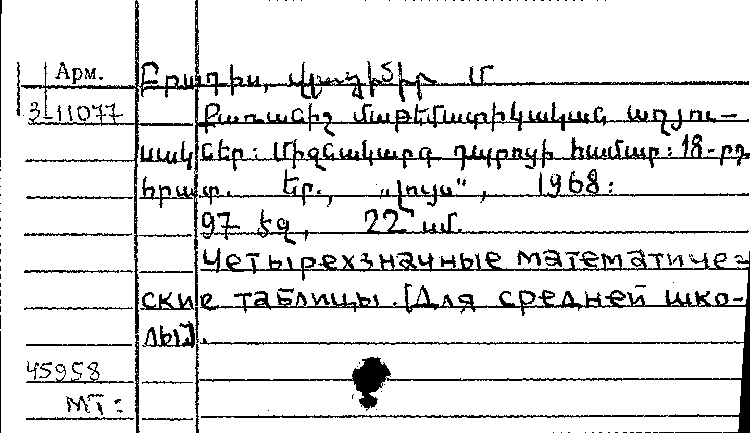 Арм. Բրադիս, Վլադիմիր Մ
3-11077 Քառանիշ մաթեմատիկական աղյու-
սակներ: Միջնակարգ դպրոցի համար: 18-րդ
հրատ. Եր., „Լույս", 1968:
97 էջ, 22 սմ.
Четырехзначные математиче-
ские таблицы. [Для средней шко-
лы].
45958
МТ: